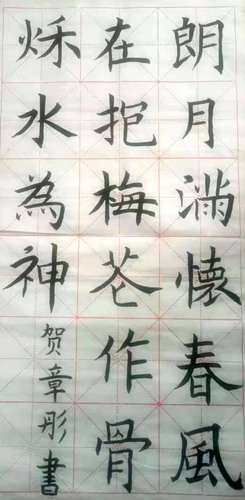 朗月滿懷春風
在抱梅花作骨
秌水為神
贺章彤書